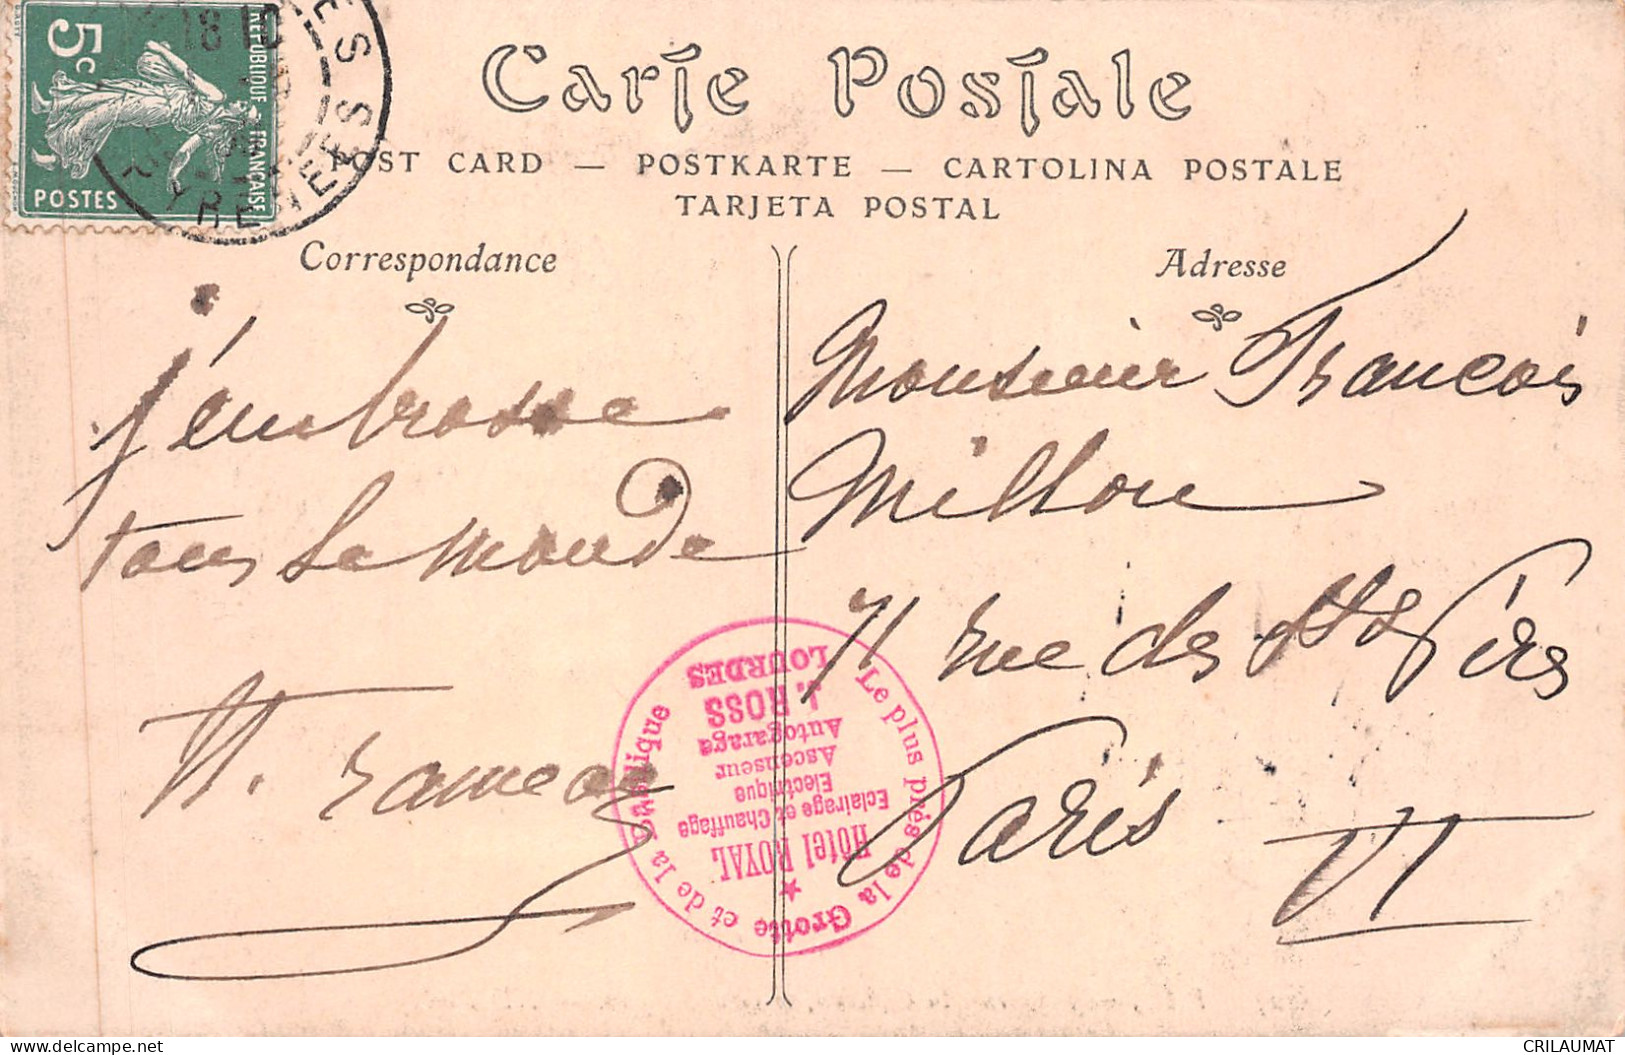 RÉPUBLIQUE FRANÇAISE
5c
POSTES
18 10
Carte Postale
POST CARD — POSTKARTE — CARTOLINA POSTALE
TARJETA POSTAL
Correspondance
Adresse
j'embrasse
tous le monde
Monsieur François
Millon
71 rue des Sts Pères
Paris
VI
Le plus près de la Grotte et de la Basilique
Hôtel ROYAL
Eclairage et Chauffage
Electrique
Ascenseur
Autogarage
J. ROSS
LOURDES
delcampe.net
CRILAUMAT